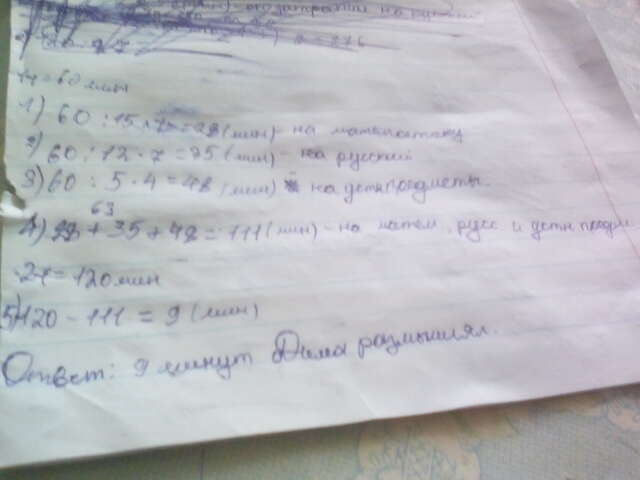 на
1ч=60мин
1) 60 : 15 · 7 = 28 (мин) - на математику
2) 60 : 12 · 7 = 35 (мин) - на русский
3) 60 : 5 · 4 = 48 (мин) на устн предметы.
63
4) 28 + 35 + 48 = 111 (мин) - на матем, русс и устн предм
2ч = 120 мин
5) 120 - 111 = 9 (мин)
Ответ: 9 минут Дима размышлял.